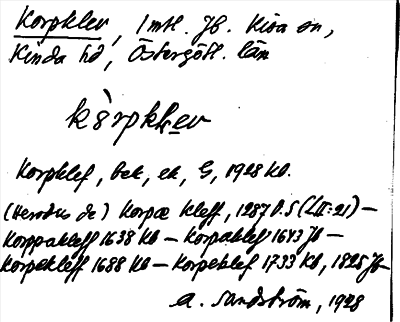 Korpklev, 1 mtl. Jb. Kisa sn,
Kinda hd, Östergötl. län
kòrpkḷev
Korpklef, bek, ek, G, 1928 kb.
(Henrdus de) Korpæ kleff, 1287 D.S (LII:21) –
Korppakleff 1638 kb – Korpaklef 1643 Jb –
Korpekleff 1688 kb – Korpeklef 1733 kb, 1825 Jb
A. Sandström, 1928